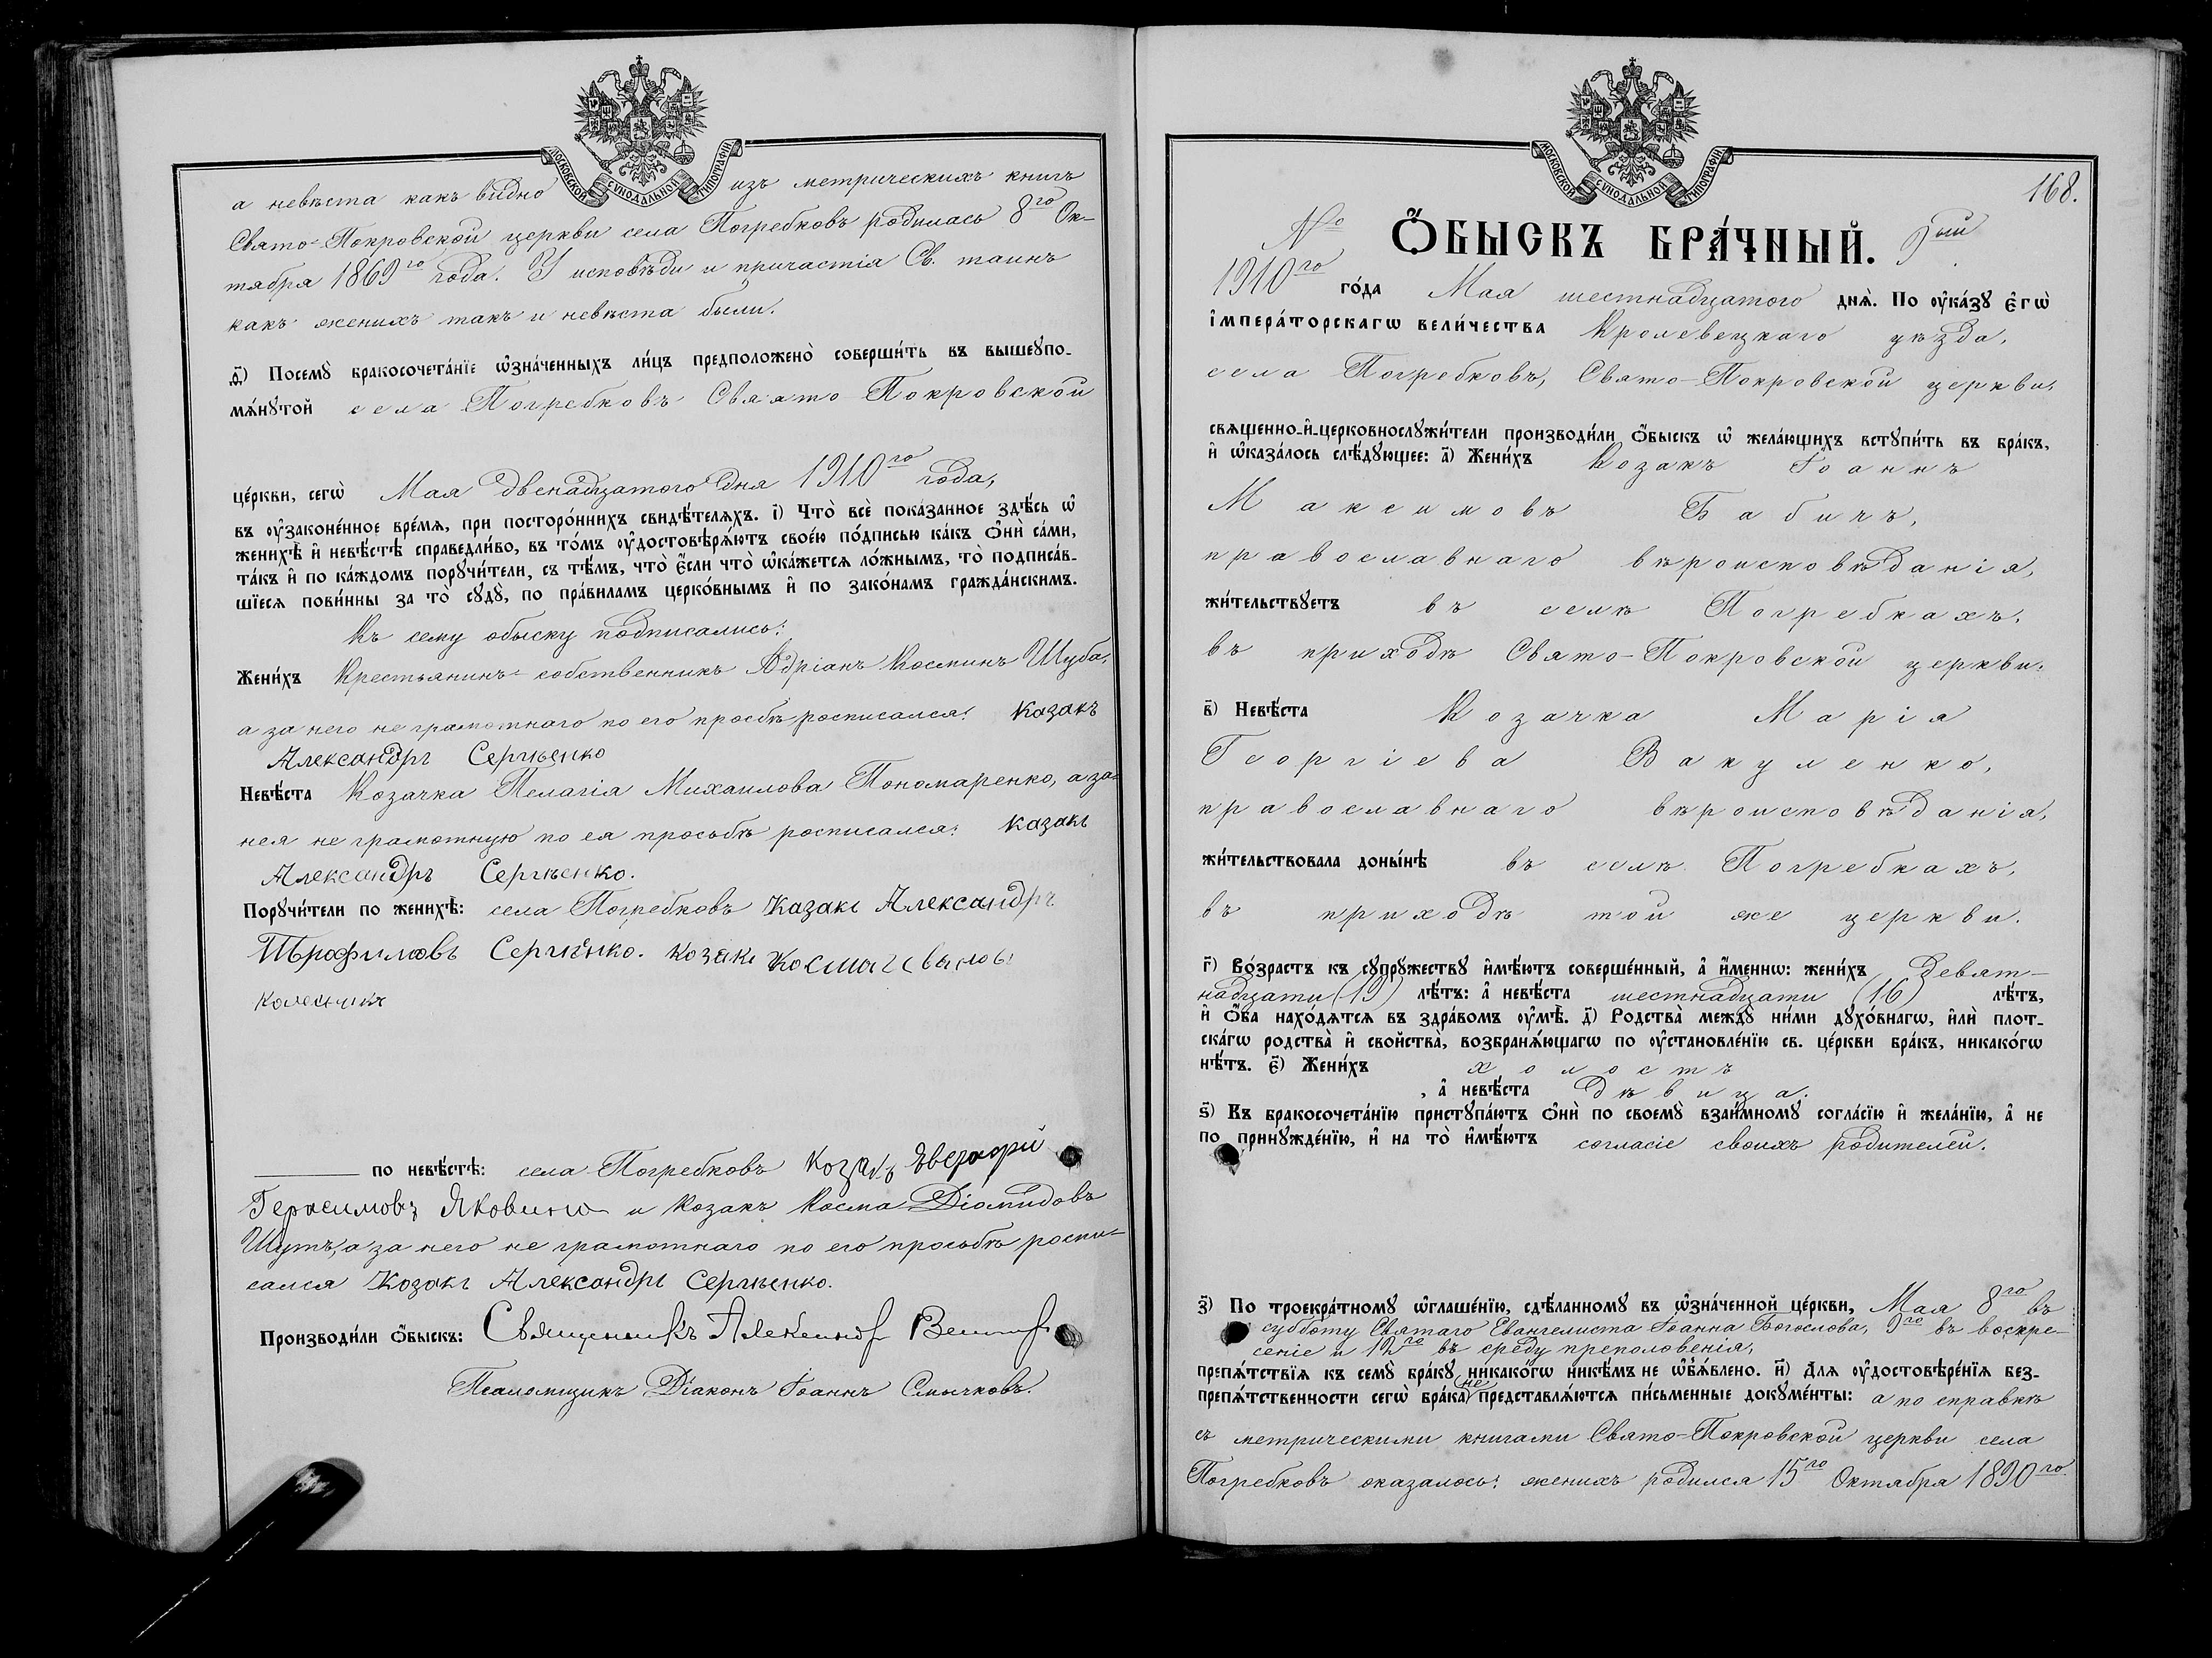 МОСКОВСКОЙ СѴНОДАЛЬНОЙ ТИПОГРАФІИ
а невѣста какъ видно изъ метрическихъ книгъ
Свято-Покровской церкви села Погребковъ родилась 8го Ок-
тября 1869го года. У исповѣди и причастія Св. таинъ
какъ женихъ такъ и невѣста были.
д҃) Посемꙋ̀ бракосочета́нїе ѡ҆зна́ченныхъ ли́цъ предположено̀ соверши́ть въ вышеꙋпо-
мѧ́нꙋтой села Погребковъ Свято-Покровской
це́ркви, сегѡ̀ Мая двенадцатого дня 1910го года,
въ оу҆законе́нное вре́мѧ, при посторо́ннихъ свидѣ́телѧхъ. і҃) Что̀ всѐ пока́занное здѣ́сь ѡ҆
женихѣ̀ и҆ невѣ́стѣ справедли́во, въ то́мъ оу҆достовѣрѧ́ютъ свое́ю по́дписью ка́къ ѻ҆нѝ са́ми,
та́къ и҆ по ка́ждомъ порꙋчи́тели, съ тѣ́мъ, что̀ є҆́сли что̀ ѡ҆ка́жетсѧ ло́жнымъ, то̀ подписа́в-
шїесѧ пови́нны за то̀ сꙋдꙋ̀, по пра́виламъ церко́внымъ и҆ по зако́намъ гражда́нскимъ.
Къ сему обыску подписались:
Жени́хъ Крестьянинъ-собственникъ Адріанъ Косминъ Шуба,
а за него не грамотнаго по его просьбѣ росписался: Казакъ
Александръ Сергѣенко
Невѣ́ста Козачка Пелагія Михаилова Пономаренко, а за
нея не грамотную по ея просьбѣ росписался: Казакъ
Александръ Сергѣенко.
Порꙋчи́тели по женихѣ̀: села Погребковъ Казакъ Александръ
Трофимовъ Сергѣенко. козакъ Косма Ивановъ
Колесникъ
по невѣ́стѣ: села Погребковъ Козакъ Евграфій
Герасимовъ Яковино и Козакъ Косма Діомидовъ
Шутъ, а за него не грамотнаго по его просьбѣ роспи-
сался Козакъ Александръ Сергѣенко.
Производи́ли ѻ҆́быскъ: Священникъ Александръ
Псаломщикъ Діаконъ Іоаннъ Смычковъ.
168.
МОСКОВСКОЙ СѴНОДАЛЬНОЙ ТИПОГРАФІИ
№ Ѻ҆́БЫСКЪ БРА́ЧНЫЙ. 9ый
1910го го́да Мая шестнадцатого днѧ̀. По оу҆ка́зꙋ є҆гѡ̀
і҆мпера́торскагѡ вели́чества Кролевецкаго уѣзда,
села Погребковъ, Свято-Покровской церкви,
свѧщенно-и҆-церковнослꙋжи́тели производи́ли ѻ҆́быскъ ѡ҆ жела́ющихъ встꙋпи́ть въ бра́къ,
и҆ ѡ҆каза́лось слѣ́дꙋющее: а҃) Жени́хъ Козакъ Іоаннъ
Максимовъ Бабичъ,
православнаго вѣроисповѣданія,
жи́тельствꙋетъ въ селѣ Погребкахъ,
въ приходѣ Свято-Покровской церкви.
в҃) Невѣ́ста Козачка Марія
Георгіева Вакуленко,
православнаго вѣроисповѣданія,
жи́тельствовала доны́нѣ въ селѣ Погребкахъ,
въ приходѣ той же церкви.
г҃) Во́зрастъ къ сꙋпрꙋ́жествꙋ и҆мѣ́ютъ соверше́нный, а҆ и҆́меннѡ: жени́хъ девят-
надцати (19) лѣ́тъ: а҆ невѣ́ста шестнадцати (16) лѣ́тъ,
и҆ ѻ҆́ба нахо́дѧтсѧ въ здра́вомъ оу҆мѣ̀. д҃) Родства̀ междꙋ̀ ни́ми дꙋхо́внагѡ, и҆лѝ плот-
ска́гѡ родства̀ и҆ свойства̀, возбранѧ́ющагѡ по оу҆становле́нїю св. це́ркви бра́къ, никако́гѡ
нѣ́тъ. є҃) Жени́хъ холостъ
, а҆ невѣ́ста дѣвица.
ѕ҃) Къ бракосочета́нїю пристꙋпа́ютъ ѻ҆нѝ по своемꙋ̀ взаи́мномꙋ согла́сїю и҆ жела́нїю, а҆ не
по принꙋжде́нїю, и҆ на то̀ и҆мѣ́ютъ согласіе своихъ родителей.
з҃) По троекра́тномꙋ ѡ҆глаше́нїю, сдѣ́ланномꙋ въ ѡ҆зна́ченной це́ркви, Мая 8го въ
субботу Святаго Евангелиста Іоанна Богослова, 9го въ воскре-
сеніе и 12го въ среду преполовенія,
препѧ́тствїѧ къ семꙋ̀ бра́кꙋ никако́гѡ никѣ́мъ не ѡ҆б̾ѧ́влено. и҃) Длѧ̀ оу҆достовѣре́нїѧ без-
препѧ́тственности сегѡ̀ бра́ка не представлѧ́ютсѧ пи́сьменные докꙋме́нты: а по справкѣ
съ метрическими книгами Свято-Покровской церкви села
Погребковъ оказалось: женихъ родился 15го Октября 1890го